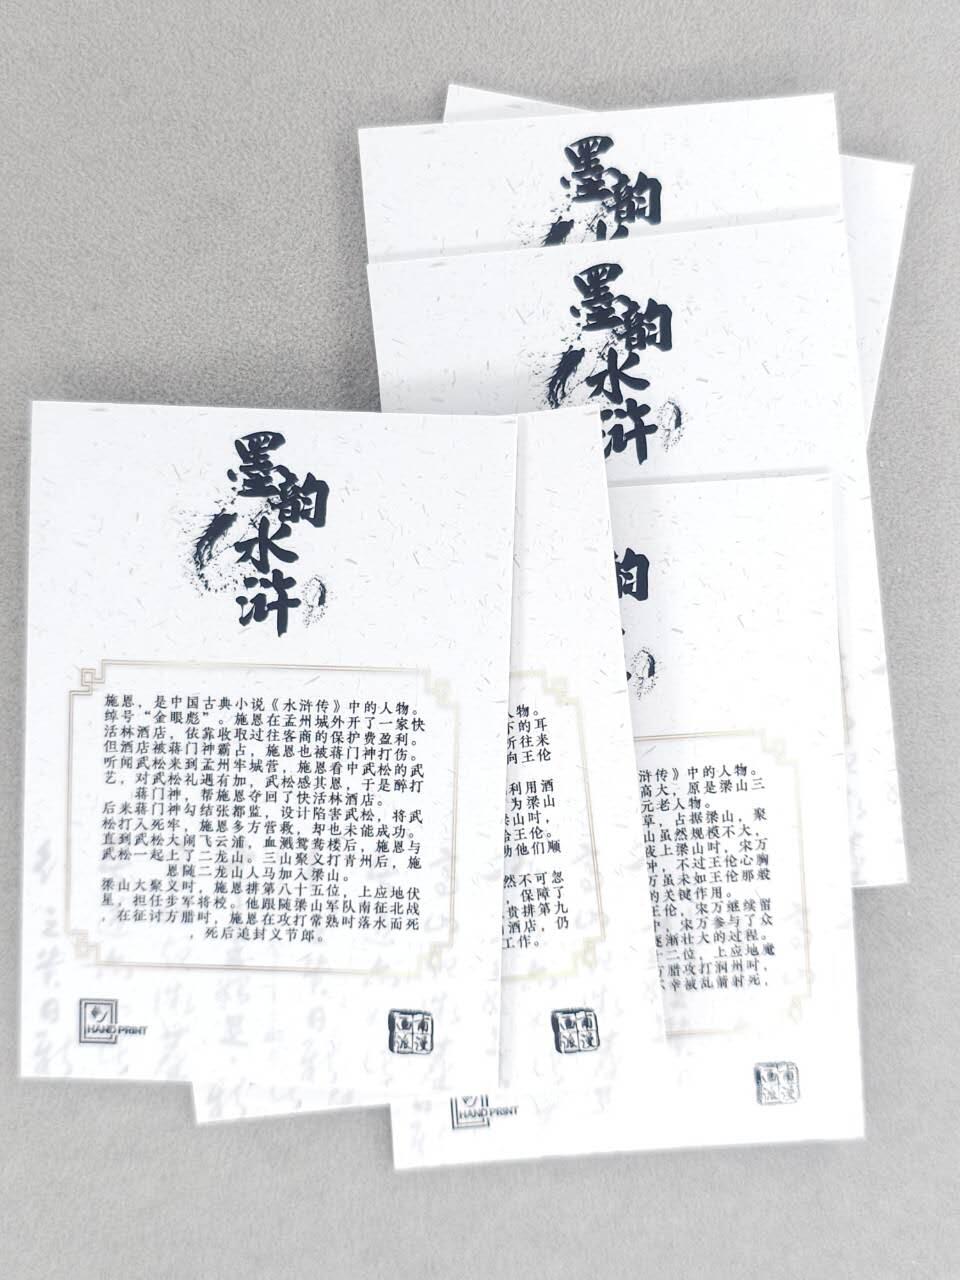 墨韵
墨韵
水浒
墨韵
水浒
韵
施恩，是中国古典小说《水浒传》中的人物。
绰号“金眼彪”。施恩在孟州城外开了一家快
活林酒店，依靠收取过往客商的保护费盈利。
但酒店被蒋门神霸占，施恩也被蒋门神打伤。
听闻武松来到孟州牢城营，施恩看中武松的武
艺，对武松礼遇有加，武松感其恩，于是醉打
蒋门神，帮施恩夺回了快活林酒店。
后来蒋门神勾结张都监，设计陷害武松，将武
松打入死牢，施恩多方营救，却也未能成功。
直到武松大闹飞云浦，血溅鸳鸯楼后，施恩与
武松一起上了二龙山。三山聚义打青州后，施
恩随二龙山人马加入梁山。
梁山大聚义时，施恩排第八十五位，上应地伏
星，担任步军将校。他跟随梁山军队南征北战
，在征讨方腊时，施恩在攻打常熟时落水而死
，死后追封义节郎。
HAND PRINT
南漫画派
人物。
下的耳
所往来
向王伦
利用酒
为梁山
梁山时，
给王伦。
劝他们顺
然不可忽
，保障了
贵排第九
酒店，仍
工作。
南漫画派
浒传》中的人物。
高大，原是梁山三
元老人物。
草，占据梁山，聚
山虽然规模不大，
夜上梁山时，宋万
冲，不过王伦心胸
万虽未如王伦那般
的关键作用。
王伦，宋万继续留
中，宋万参与了众
逐渐壮大的过程。
十二位，上应地魔
方腊攻打润州时，
不幸被乱箭射死，
HAND PRINT
南漫画派